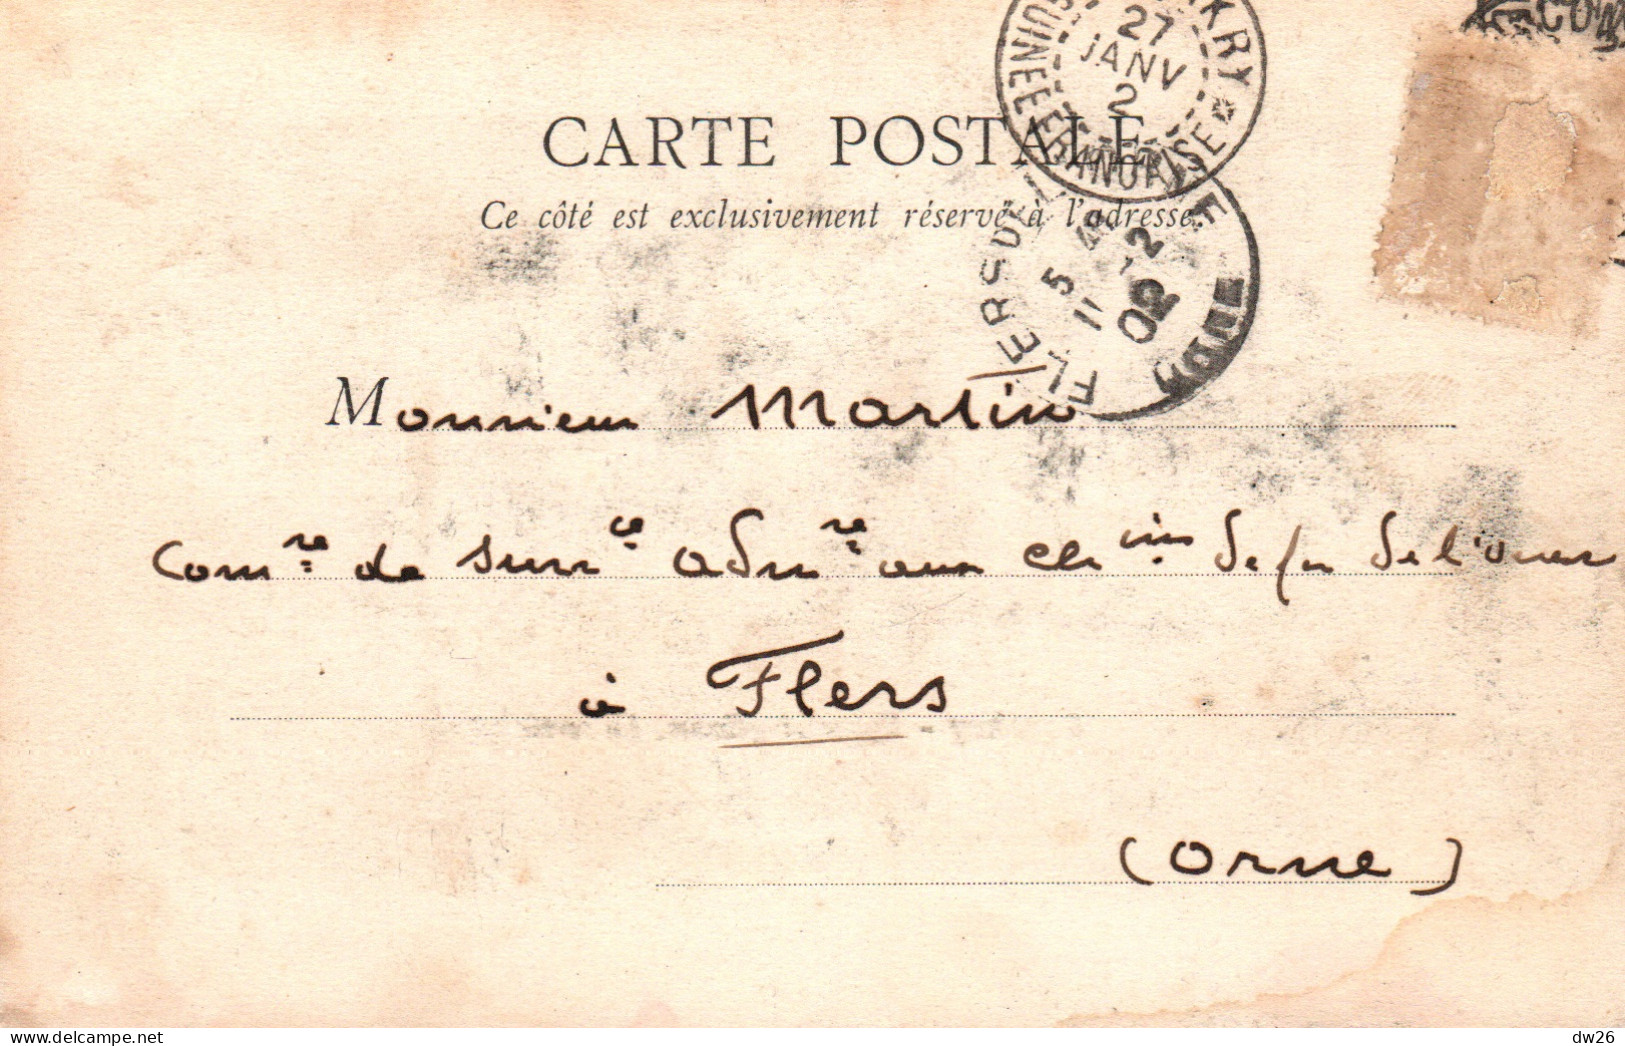 KRY
27
JANV
2
GUINEE FRANCAISE
CARTE POSTALE
Ce côté est exclusivement réservé à l'adresse.
FLERS DE L'ORNE
5 4
11 - 2
02
ORNE
Monsieur Martin
Com.re de surv.ce adm.ve aux ch.ins de fer de l'ouest
à Flers
(Orne)
dw26